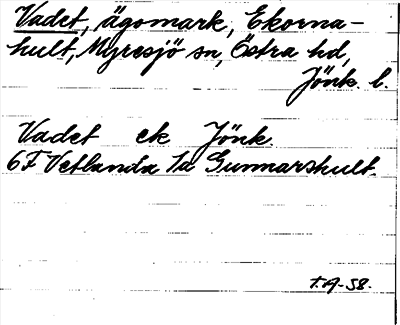 Vadet, ägomark, Ekorna-
hult, Myresjö sn, Östra hd,
Jönk. l.
Vadet ek Jönk.
6F Vetlanda 1a Gunnarshult.
T.A-58.